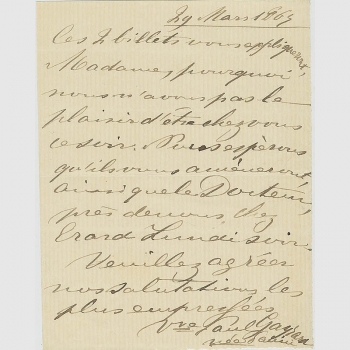 29 Mars 1865
Ces 2 billets vous expliqueront,
Madame, pourquoi
nous n'avons pas le
plaisir d'être chez vous
ce soir. Nous espérons
qu'ils vous amèneront,
ainsi que le Docteur,
près de nous, chez
Erard Lundi soir.
Veuillez agréer
nos salutations les
plus empressées
Vve Paul
née